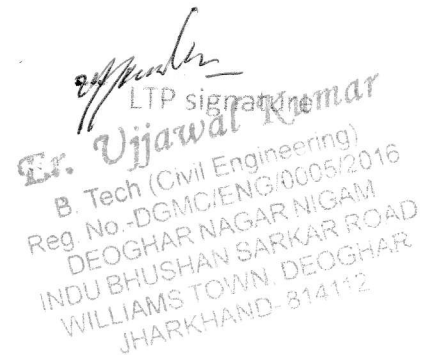 LTP signature
Er. Ujjawal Kumar
B. Tech (Civil Engineering)
Reg. No.-DGMC/ENG/0005/2016
DEOGHAR NAGAR NIGAM
INDU BHUSHAN SARKAR ROAD
WILLIAMS TOWN, DEOGHAR
JHARKHAND- 814112